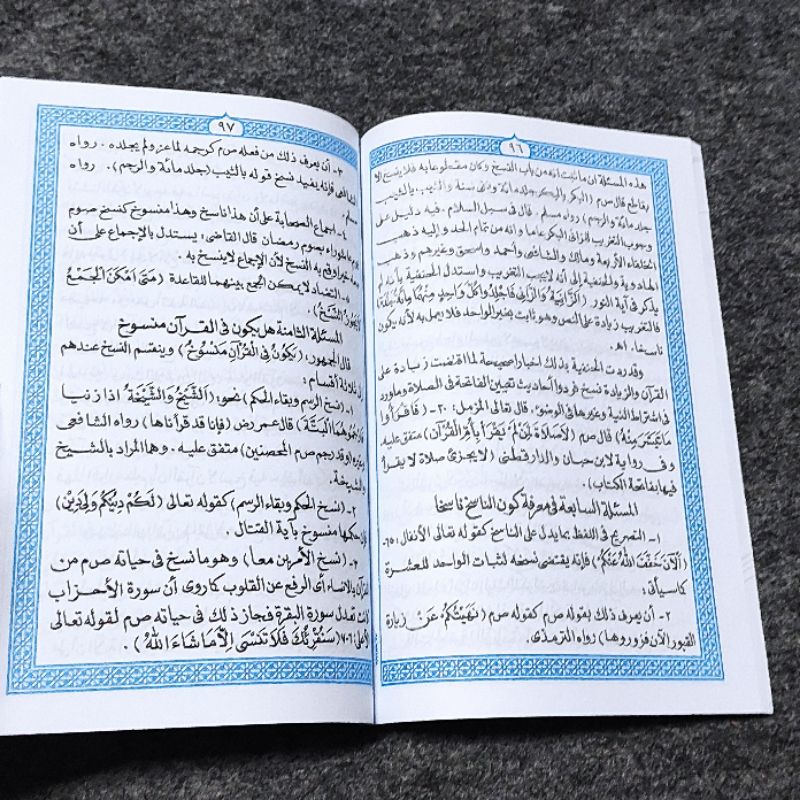 ٩٦
هذه المسئلة ان ما ثبت انه من باب النسخ وكان مقطوعا به فلا ينسخ إلا
بقاطع قال صم (البكر والبكر جلد مائة ونفي سنة والثيب بالثيب
جلد مائة والرجم) رواه مسلم. قال في سبل السلام. فيه دليل على
وجوب التغريب للزاني البكر عاما وانه من تمام الحد وإليه ذهب
الخلفاء الأربعة ومالك والشافعي وأحمد وإسحق وغيرهم وذهب
الهادوية والحنفية إلى أنه لا يجب التغريب واستدل الحنفية بأنه لم
يذكر في آية النور: (الزَّانِيَةُ وَالزَّانِي فَاجْلِدُوا كُلَّ وَاحِدٍ مِنْهُمَا مِائَةَ جَلْدَةٍ)
فالتغريب زيادة على النص وهو ثابت بخبر الواحد فلا يعمل به لأنه يكون
ناسخا. اه.
وقد ردت الحنفية بذلك اخبارا صحيحة لما اقتضت زيادة على
القرآن والزيادة نسخ فردوا أحاديث تعيين الفاتحة في الصلاة وما ورد
في اشتراط النية وغيرها في الوضوء. قال تعالى المزمل: ٢٠- (فَاقْرَأُوا
مَا تَيَسَّرَ مِنْهُ) قال صم (لَا صَلَاةَ لِمَنْ لَمْ يَقْرَأْ بِأُمِّ الْقُرْآنِ) متفق عليه.
وفي رواية لابن حبان والدارقطني (لا يجزئ صلاة لا يقرأ
فيها بفاتحة الكتاب).
المسئلة السابعة في معرفة كون الناسخ ناسخا
١- التصريح في اللفظ بما يدل على الناسخ كقوله تعالى الأنفال: ٦٥
(اَلْآنَ خَفَّفَ اللهُ عَنْكُمْ) فإنه يقتضي نسخه لثبات الواحد للعشرة
كما سيأتي:
٢- أن يعرف ذلك بقوله صم كقوله صم (نَهَيْتُكُمْ عَنْ زيارة
القبور الآن فزوروها) رواه الترمذي.
٩٧
٣- أن يعرف ذلك من فعله صم كرجمه لماعز ولم يجلده. رواه
الشافعي فإنه يفيد نسخ قوله بالثيب (جلد مائة والرجم). رواه
مسلم.
٤- اجماع الصحابة على أن هذا ناسخ وهذا منسوخ كنسخ صوم
عاشوراء بصوم رمضان قال القاضي: يستدل بالإجماع على أن
معه خبرا وقع به النسخ لأن الإجماع لا ينسخ به.
٥- التضاد لا يمكن الجمع بينهما للقاعدة (مَتَى اَمْكَنَ الْجَمْعُ
لَا يَجُوزُ النَّسْخُ).
المسئلة الثامنة هل يكون في القرآن منسوخ
قال الجمهور: (يَكُونُ فِي الْقُرْآنِ مَنْسُوخٌ) وينقسم النسخ عندهم
إلى ثلاثة أقسام:
١- (نسخ الرسم وبقاء الحكم) نحو: (اَلشَّيْخُ وَالشَّيْخَةُ اذا زنيا
فَارْجُمُوهُمَا الْبَتَّةَ) قال عمر رض (فإنا قد قرأناها) رواه الشافعي
وغيره وقد (رجم صم المحصنين) متفق عليه. وهما المراد بالشيخ
والشيخة.
٢- (نسخ الحكم وبقاء الرسم) كقوله تعالى (لَكُمْ دِيْنُكُمْ وَلِيَ دِيْنِ)
حكمها منسوخ بآية القتال.
٣- (نسخ الأمرين معا) وهو ما نسخ في حياته صم من
القرآن بالإنساء أي الرفع عن القلوب كما روى أن سورة الأحزاب
كانت تعدل سورة البقرة فجاز ذلك في حياته صم لقوله تعالى
الأعلى: ٦-٧ (سَنُقْرِئُكَ فَلَا تَنْسَى اِلَّا مَا شَاءَ اللهُ).